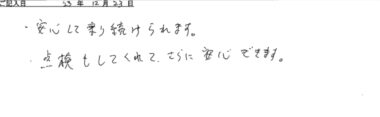 ご記入日 23年12月23日
・安心して乗り続けられます。
・点検もしてくれて、さらに安心できます。